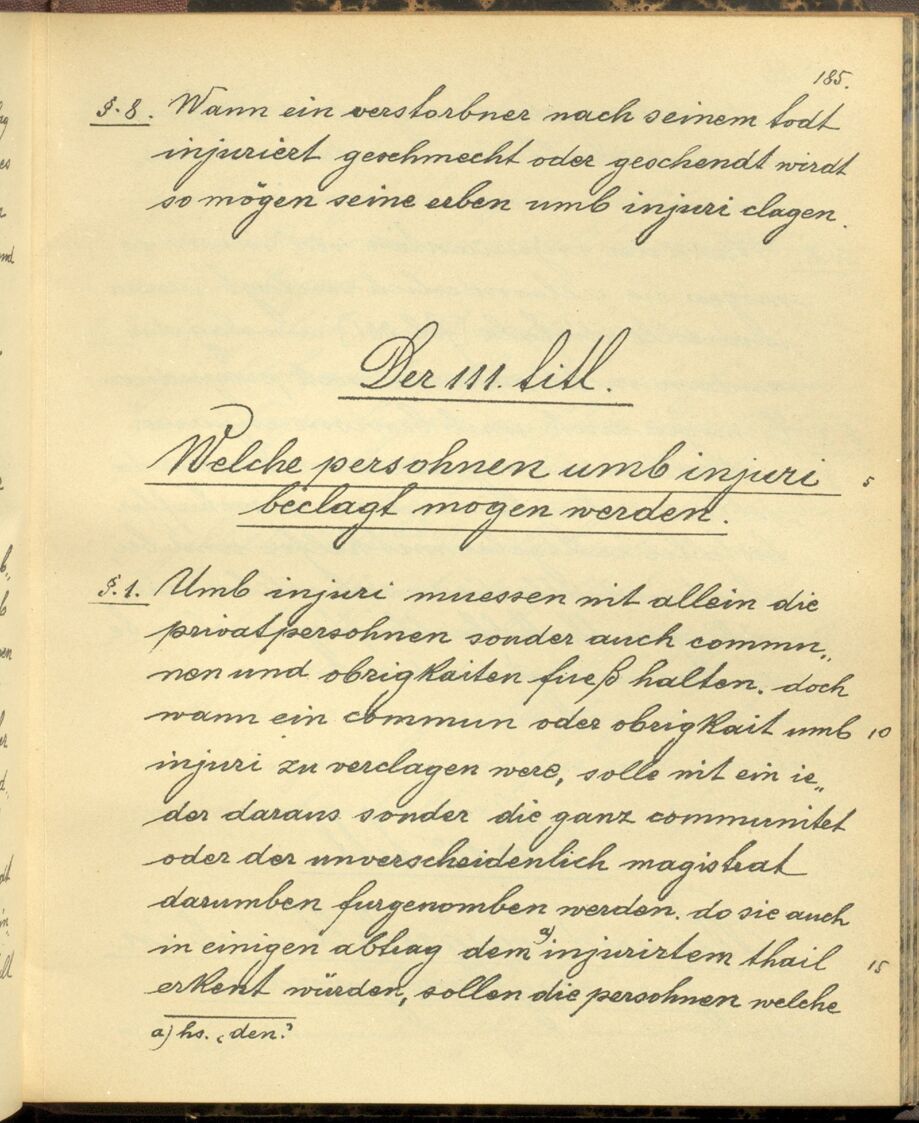 185.
§. 8. Wann ein verstorbner nach seinem todt
injuriert geschmecht oder geschendt wirdt
so mögen seine erben umb injuri clagen.
Der 111. titl.
Welche persohnen umb injuri 5
beclagt mogen werden.
§. 1. Umb injuri muessen nit allein die
privatpersohnen sonder auch commu„
nen und obrigkaiten fueß halten. doch
wann ein commun oder obrigkait umb 10
injuri zu verclagen were, solle nit ein ie„
der daraus sonder die ganz communitet
oder der unverscheidenlich magistrat
darumben furgenomben werden. do sie auch
in einigen abtrag dem a) injurirtem thail 15
erkent würden, sollen die persohnen welche
a) hs. „den“